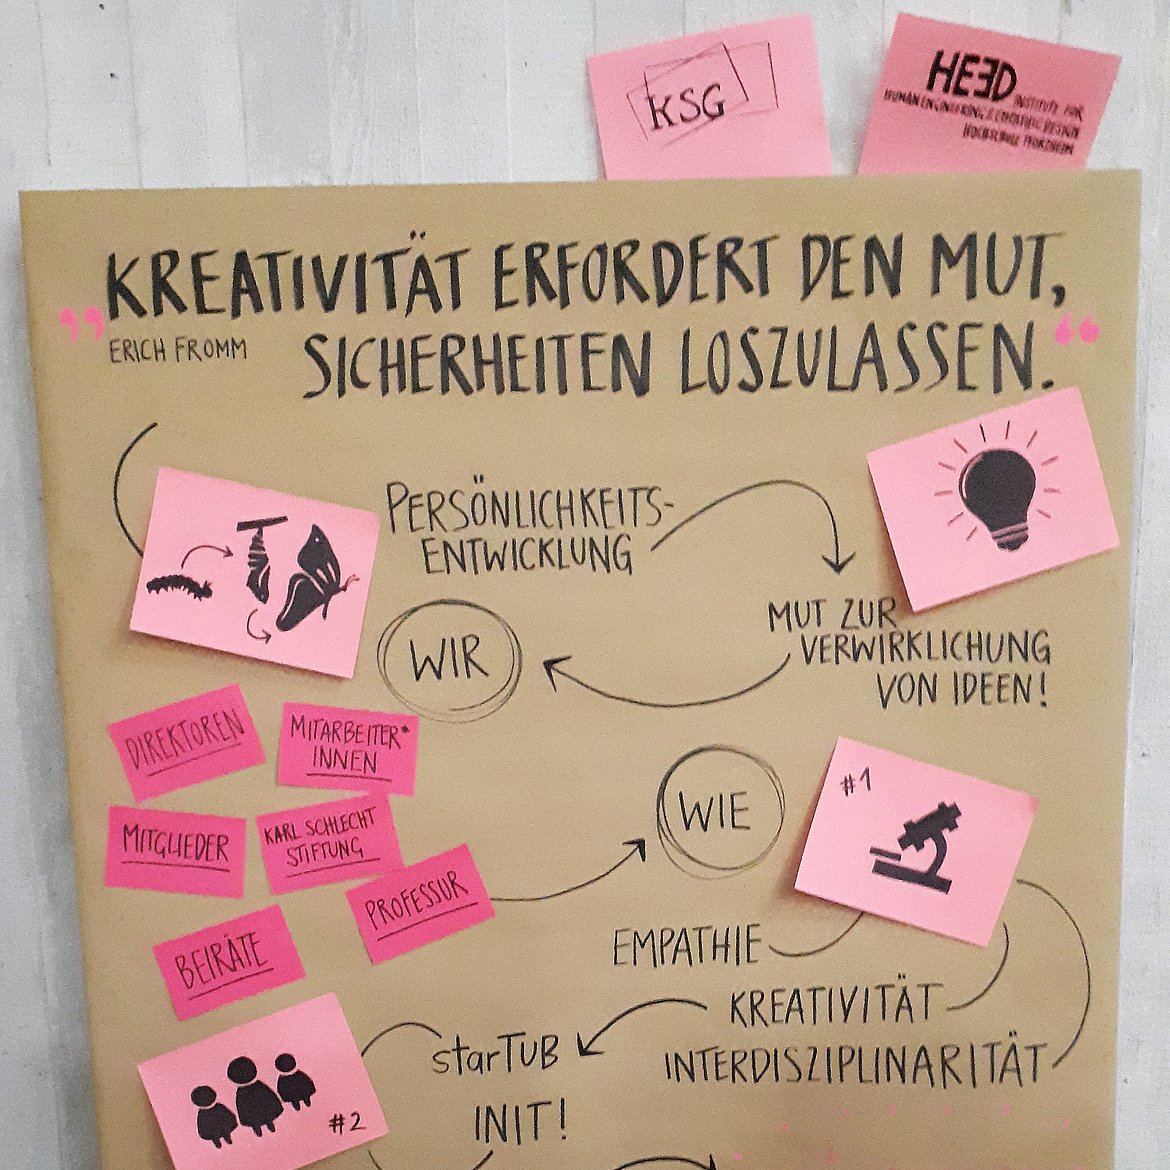 KSG
HEED
INSTITUTE FOR
HUMAN ENGINEERING & EMPATHIC DESIGN
HOCHSCHULE PFORZHEIM
„KREATIVITÄT ERFORDERT DEN MUT,
SICHERHEITEN LOSZULASSEN.“
ERICH FROMM
PERSÖNLICHKEITS-
ENTWICKLUNG
MUT ZUR
VERWIRKLICHUNG
VON IDEEN!
WIR
DIREKTOREN
MITARBEITER*
INNEN
MITGLIEDER
KARL SCHLECHT
STIFTUNG
PROFESSUR
BEIRÄTE
WIE
#1
EMPATHIE
KREATIVITÄT
INTERDISZIPLINARITÄT
starTUB
INIT!
#2